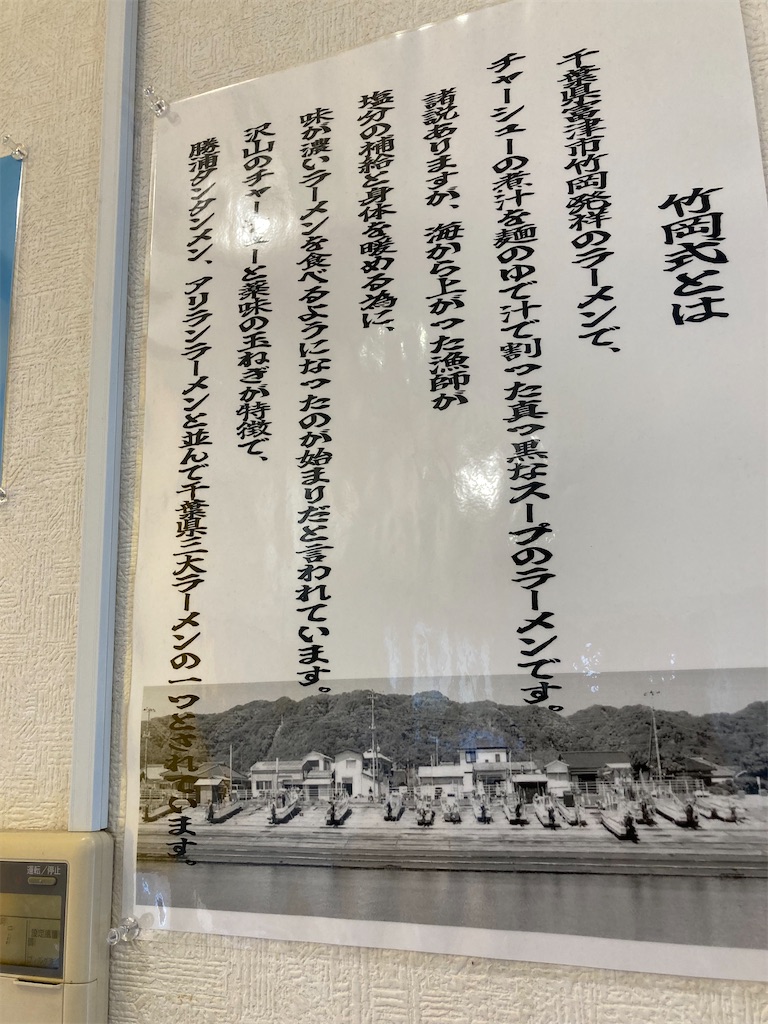 竹岡式とは
千葉県富津市竹岡発祥のラーメンで、
チャーシューの煮汁を麺のゆで汁で割った真っ黒なスープのラーメンです。
諸説ありますが、海から上がった漁師が
塩分の補給と身体を暖める為に、
味が濃いラーメンを食べるようになったのが始まりだと言われています。
沢山のチャーシューと薬味の玉ねぎが特徴で、
勝浦タンタンメン、アリランラーメンと並んで千葉県三大ラーメンの一つとされています。
運転/停止